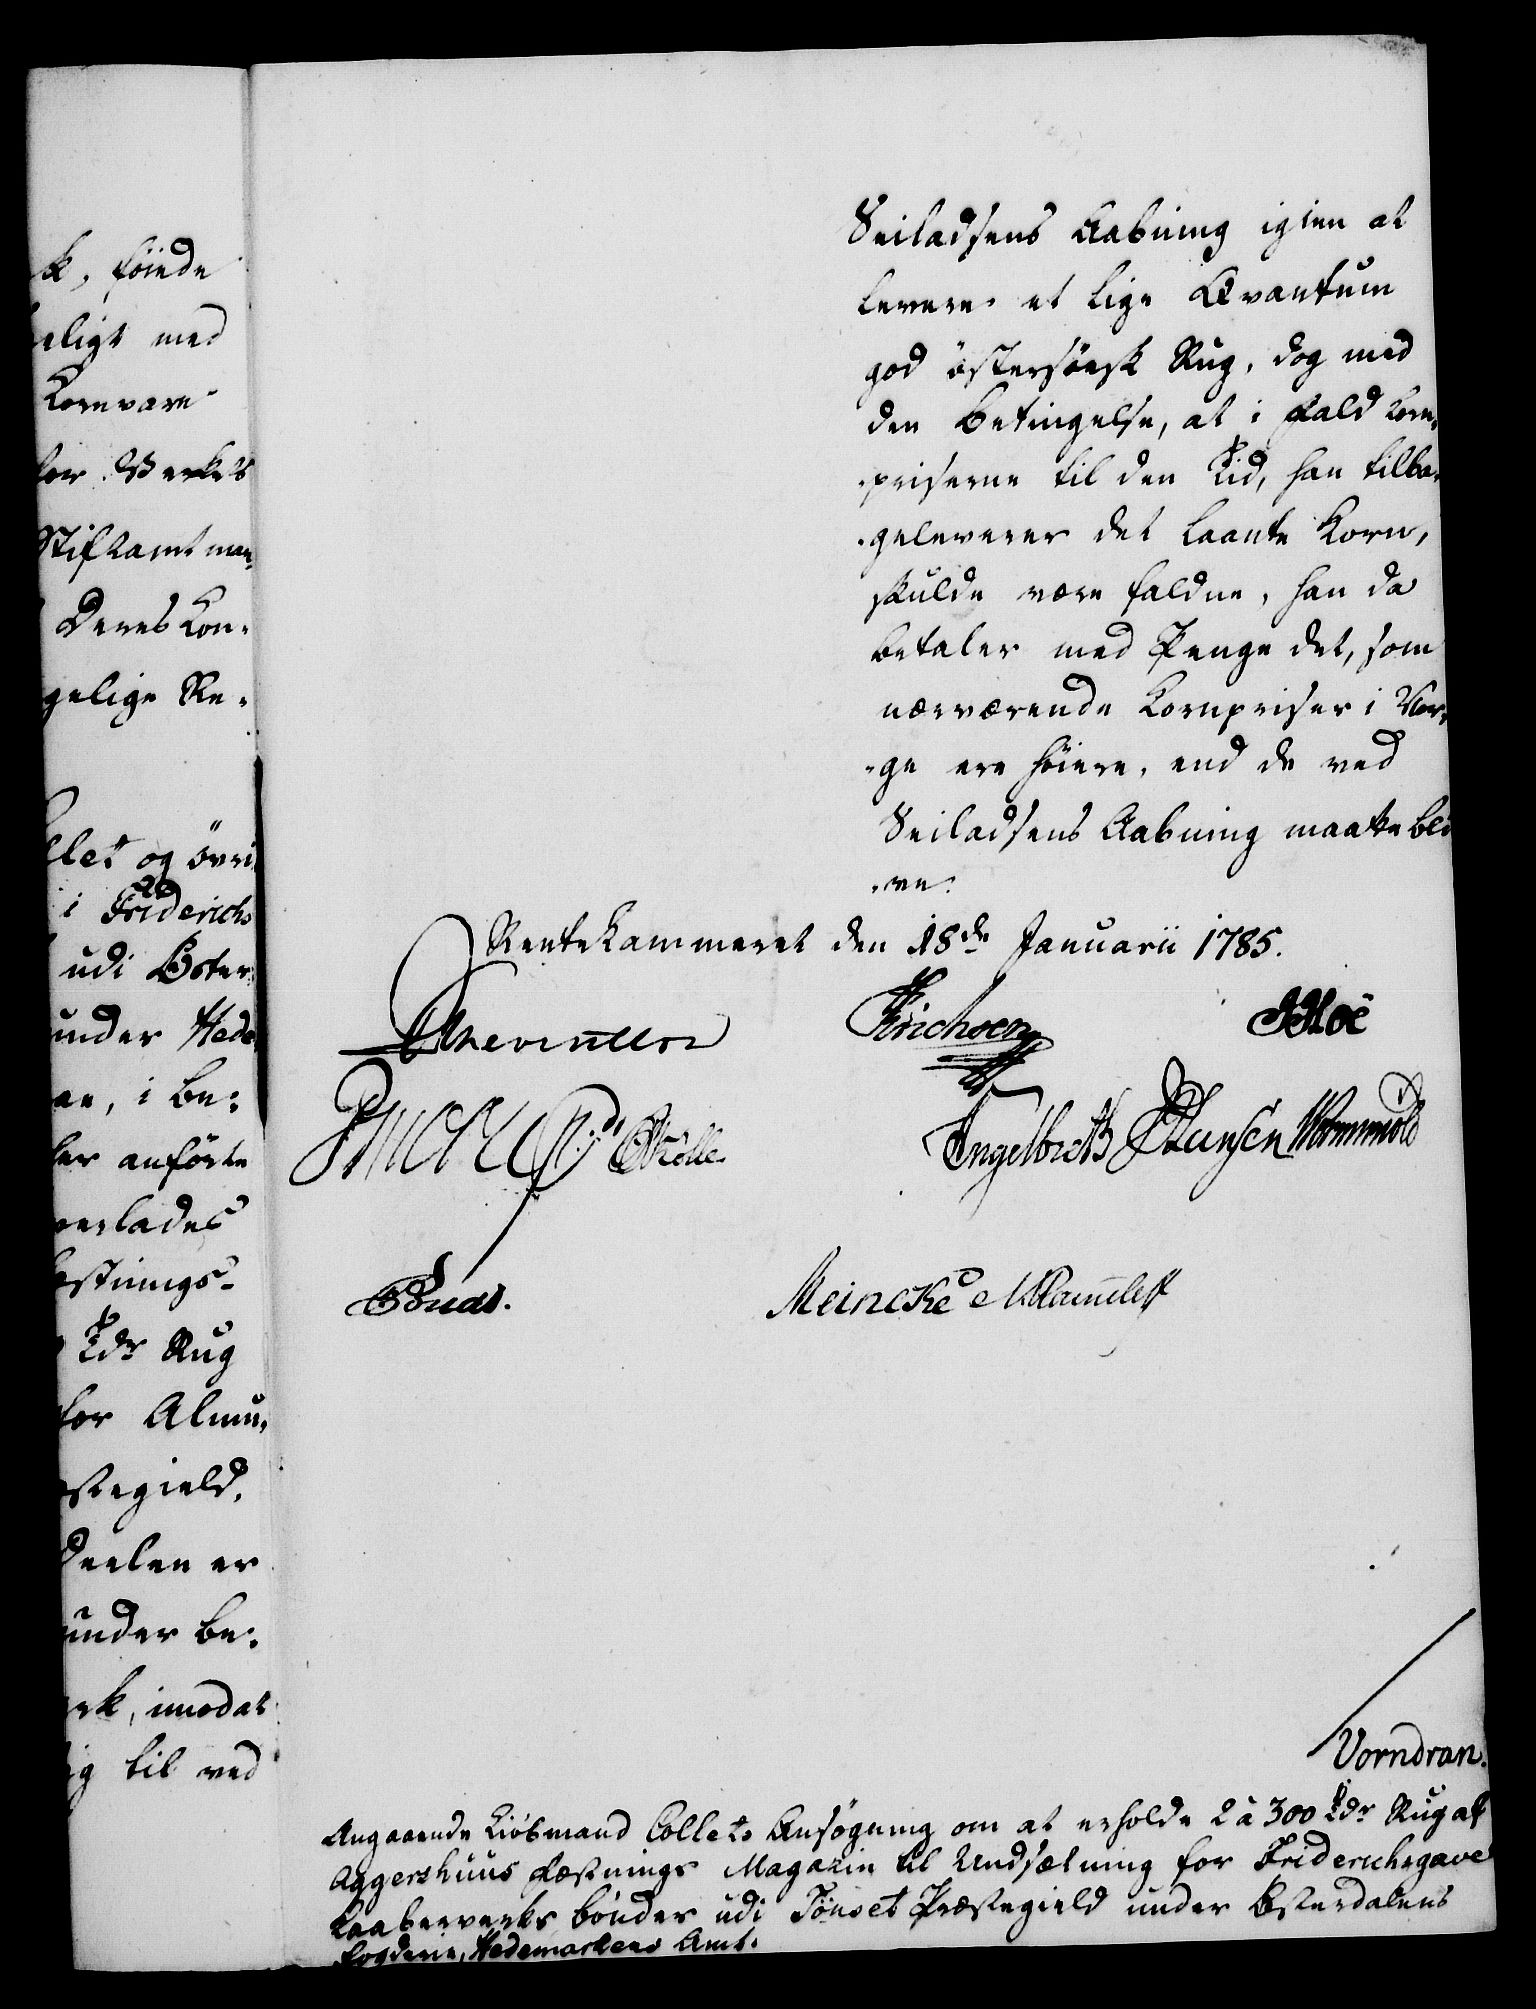 k, föiede
eligt med
Kornvare
for Verkets
Stiftamtman-
Deres Kon-
gelige Re-
llet og övri
i Friderichs
udi Öster-
under Hede
en, i be-
ler anförte
overlades
æstnings-
Tdr Rug
for Almu-
æstegield,
Deelen er
under be-
erk, imodat
ig til ved
Seiladsens Aabning igien at
levere et lige Qvantum
god östersöisk Rug, dog med
den Betingelse, at i Fald Korn-
priserne til den Tid, han tilba-
geleverer det laante Korn,
skulde være faldne, han da
betaler med Penge det, som
nærværende Kornpriser i Nor-
ge ere höiere, end de ved
Seiladsens Aabning maatte bli-
ve.
RenteKammeret den 18de Januarii 1785.
Erichsen
Mölle
Engelbreth Hansen Wormskiold
Meincke Rameleff
Vorndran.
Angaaende Kiöbmand Collets Ansögning om at erholde 2 à 300 Tdr Rug af
Aggershuus Fæstnings Magazin til Undsætning for Friderichsgave
Kaaberverks bönder udi Tönset Præstegield under Österdalens
Fogderie, Hedemarkens Amt.